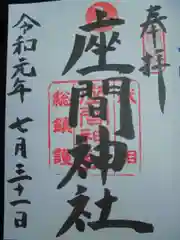 奉拝
座間神社
相模
総鎮護
令和元年七月三十一日